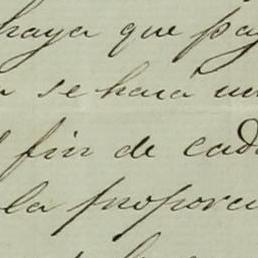 haya que pag
se hará un
fin de cada
la proporci